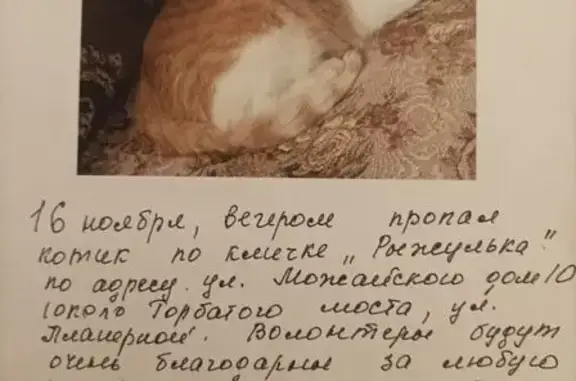 16 ноября, вечером пропал
котик по кличке „Рыжулька"
по адресу ул. Можайского дом 10
(около Горбатого моста, ул.
Планерной. Волонтеры будут
очень благодарны за любую